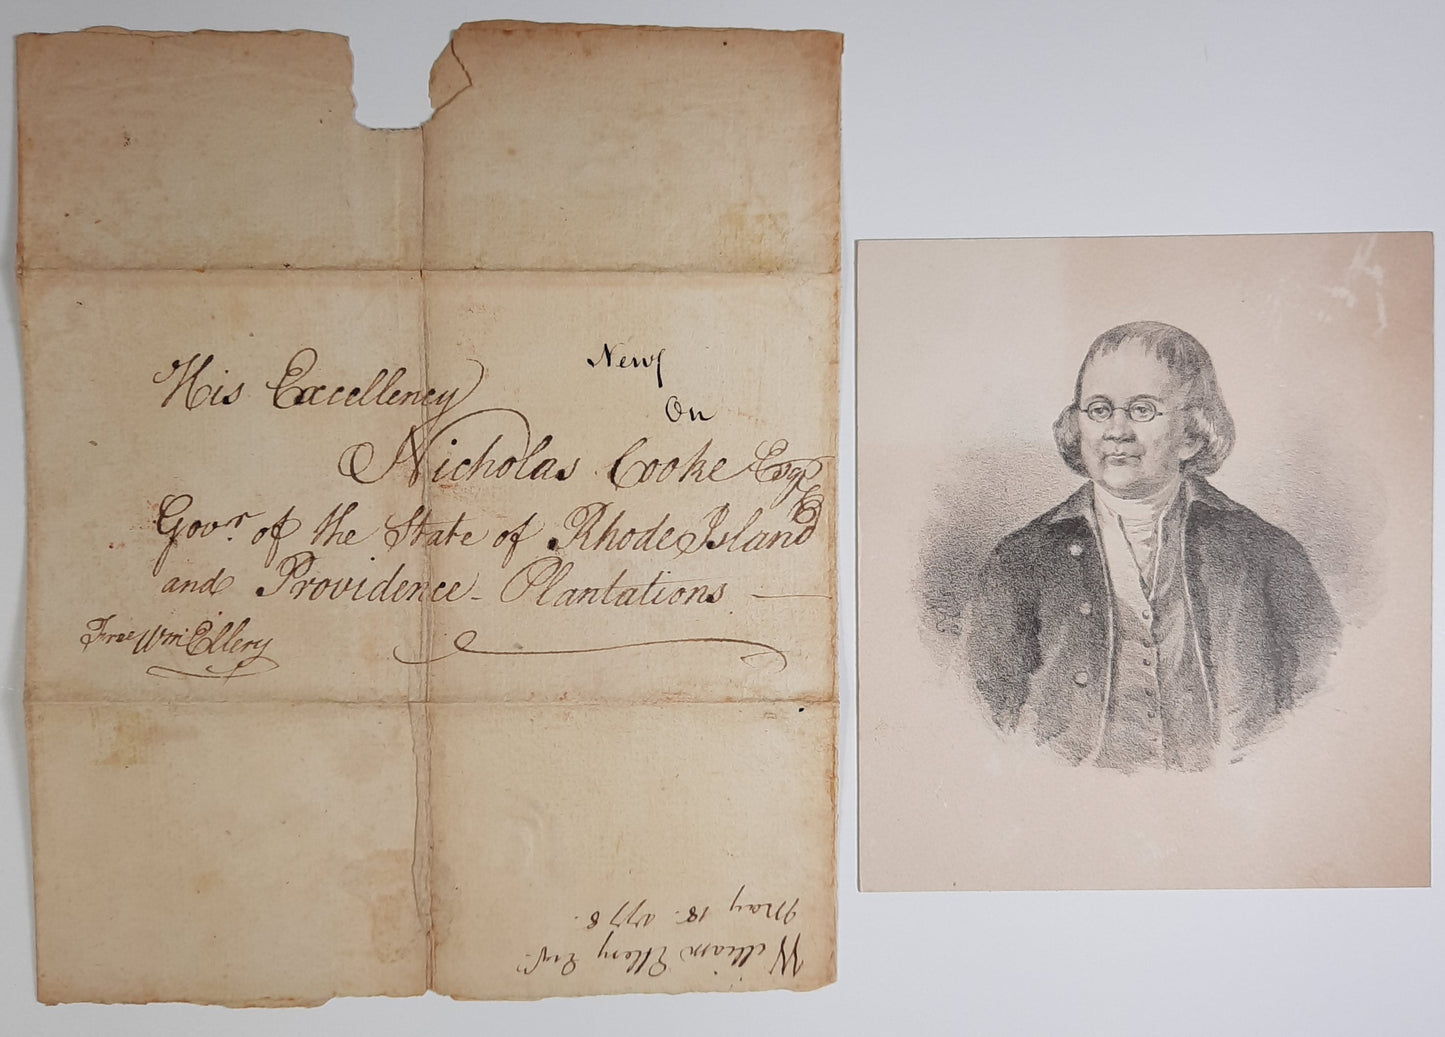 His Excellency
Newp
On
Nicholas Cooke Esqr
Govr. of the State of Rhode Island
and Providence - Plantations
Free Wm Ellery
William Ellery Esqr.
May 18. 1778.